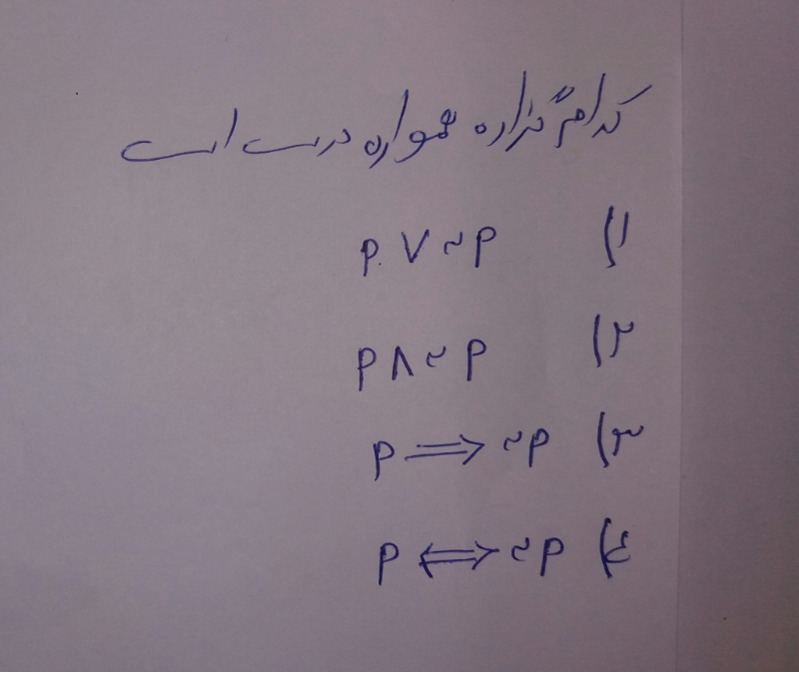 کدام گزاره همواره درست است
۱) p ∨ ~p
۲) p ∧ ~p
۳) p ⟹ ~p
۴) p ⟺ ~p